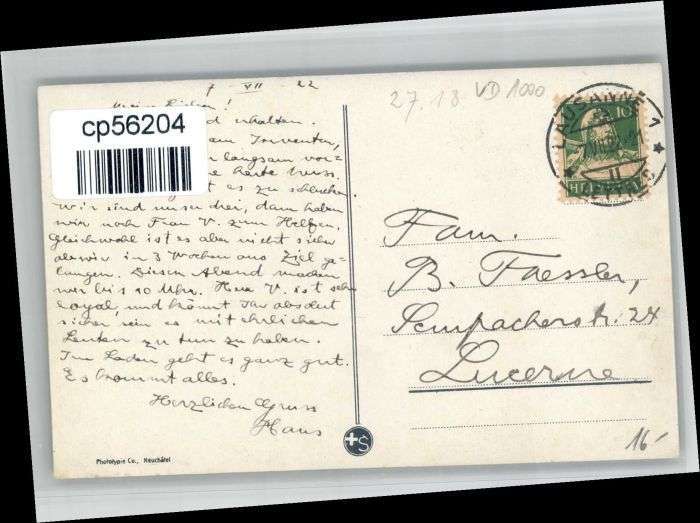 7 VII 22
Meine Lieben!
erhalten.
am Inventar,
langsam vor=
harte Nuss.
es zu schlucken.
Wir sind unser drei, dann haben
wir noch Frau V. zum Helfen,
Gleichwohl ist es aber nicht sicher
ob wir in 3 Wochen ans Ziel ge=
langen. Diesen Abend machen
wir bis 10 Uhr. Herr V. ist sehr
loyal, und könnt Ihr absolut
sicher sein es mit ehrlichen
Leuten zu tun zu haben.
Im Laden geht es ganz gut.
Es kommt alles.
Herzlichen Gruss
Hans
cp56204
27.18. VD 1000
LAUSANNE 1
10
HELVETIA
Fam.
B. Faessler,
Sempacherstr. 24
Lucerne
+S
16.-
Phototypie Co., Neuchâtel